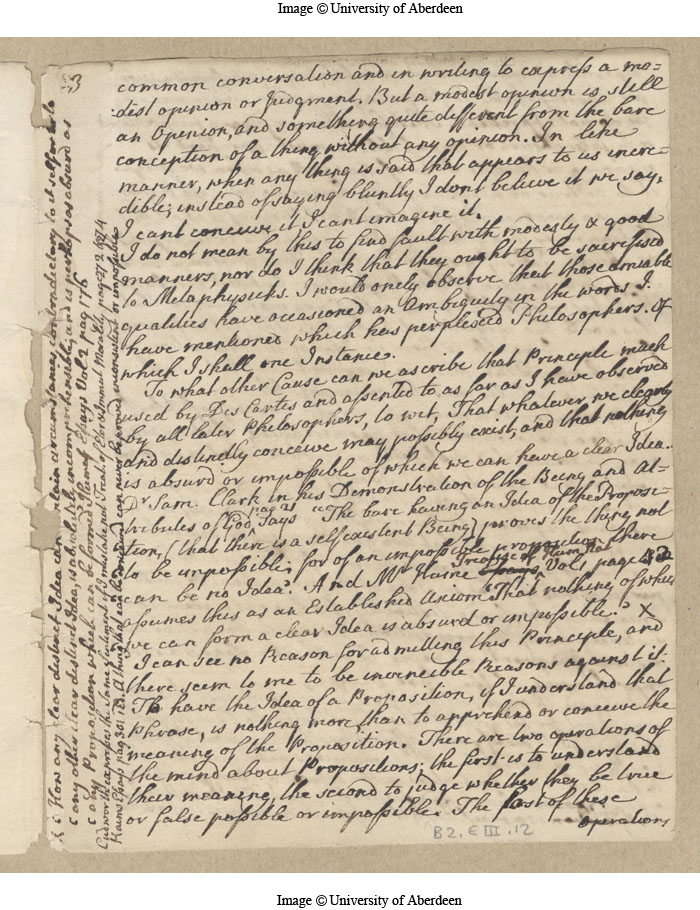 Image © University of Aberdeen
3
common conversation and in writing to express a mo-
dest opinion or Judgment. But a modest opinion is still
an Opinion, and something quite different from the bare
conception of a thing without any opinion. In like
manner, when any thing is said that appears to us incre-
dible; instead of saying bluntly I dont believe it we say,
I cant conceive it I cant imagine it.
I do not mean by this to find fault with modesty & good
manners, nor do I think that they ought to be sacrificed
to Metaphysicks. I would onely observe that those amiable
qualities have occasioned an Ambiguity in the words I
have mentioned which has perplexed Philosophers. Of
which I shall one Instance.
To what other Cause can we ascribe that Principle much
used by Des Cartes and assented to as far as I have observed
by all later Philosophers, to wit, That whatever we clearly
and distinctly conceive may possibly exist, and that nothing
is absurd or impossible of which we can have a clear Idea.
Dr Sam. Clark in his Demonstration of the Being and At-
tributes of God, pag 21 says "The bare having an Idea of the Proposi-
tion, (that there is a self existent Being) proves the thing not
to be unpossible; for of an impossible proposition there
can be no Idaa". And Mr Hume Treatise of Hum Nat Vol 1 page
assumes this as an Established Axiom "That nothing of which
we can form a clear Idea is absurd or impossible." X
I can see no Reason for admitting this Principle, and
there seem to me to be invincible Reasons against it.
To have the Idea of a Proposition, if I understand that
phrase, is nothing more than to apprehend or conceive the
meaning of the Proposition. There are two operations of
the mind about Propositions; the first is to understand
their meaning, the second to judge whether they be true
or false possible or impossible. The first of these
operations
X How any clear distinct Idea can in certain circumstances, contradictory to it self or to
any other clear distinct Idea, is absolutely incomprehensible; and is perhaps as absurd as
any Proposition which can be formed Humes Essays Vol 2 pag 176
Cudworth expresses the same sentiment if I mistake not Treat. of Eternl & Immut Morality pag 172 &
Kaims Essays pag 301
B2. E III. 12
Image © University of Aberdeen